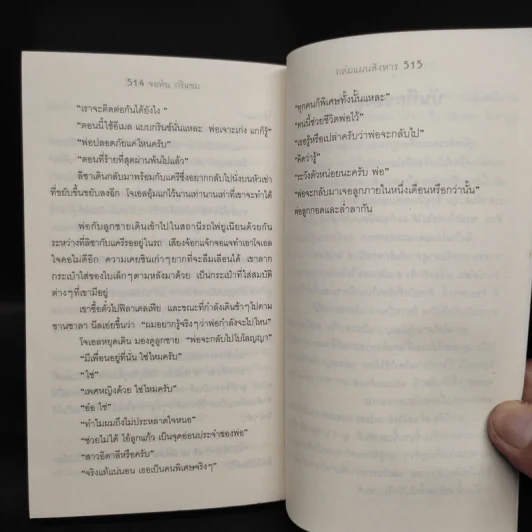 514 จอห์น กริแชม
"เราจะติดต่อกันได้ยังไง"
"ตอนนี้ใช้อีเมล แบบกรินซ์นั่นแหละ พ่อเจาะเก่ง แกก็รู้"
"พ่อปลอดภัยแค่ไหนครับ"
"ตอนที่ร้ายที่สุดผ่านพ้นไปแล้ว"
ลิซาเดินกลับมาพร้อมกับแครีซึ่งอยากกลับไปนั่งบนหัวเข่า
ที่ขยับขึ้นขยับลงอีก โจเอลอุ้มแกไว้นานเท่านานเท่าที่เขาจะทำได้
พ่อกับลูกชายเดินเข้าไปในสถานีรถไฟยูเนียนด้วยกัน
ระหว่างที่ลิซากับแครีรออยู่ในรถ เสียงจ้อกแจ้กจอแจทำเอาโจเอล
ใจคอไม่ดีอีก ความเคยชินเก่าๆยากที่จะลืมเลือนได้ เขาลาก
กระเป๋าใส่ของใบเล็กๆตามหลังมาด้วย เป็นกระเป๋าที่ใส่สมบัติ
ต่างๆที่เขามีอยู่
เขาซื้อตั๋วไปฟิลาเดลเฟีย และขณะที่กำลังเดินช้าๆไปตาม
ชานชาลา นีลเอ่ยขึ้นว่า "ผมอยากรู้จริงๆว่าพ่อกำลังจะไปไหน"
โจเอลหยุดเดิน มองดูลูกชาย "พ่อจะกลับไปโบโลญญา"
"มีเพื่อนอยู่ที่นั่น ใช่ไหมครับ"
"ใช่"
"เพศหญิงด้วย ใช่ไหมครับ"
"อ๋อ ใช่"
"ทำไมผมถึงไม่ประหลาดใจหนอ"
"ช่วยไม่ได้ ไอ้ลูกแก้ว เป็นจุดอ่อนประจำของพ่อ"
"สาวอิตาลีหรือครับ"
"จริงแท้แน่นอน เธอเป็นคนพิเศษจริงๆ"
ถล่มแผนสังหาร 515
"ทุกคนก็พิเศษทั้งนั้นแหละ"
"คนนี้ช่วยชีวิตพ่อไว้"
"เธอรู้หรือเปล่าครับว่าพ่อจะกลับไป"
"คิดว่ารู้"
"ระวังตัวหน่อยนะครับ พ่อ"
"พ่อจะกลับมาเจอลูกภายในหนึ่งเดือนหรือกว่านั้น"
พ่อลูกกอดและล่ำลากัน